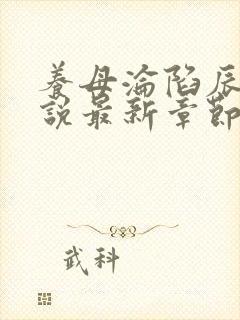 養母淪陷辰
說最新章節
武科